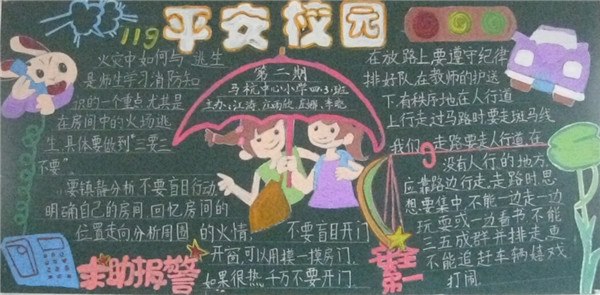 119
平安校园
火灾中如何与逃生
是师生学习消防知
识的一个重点尤其是
在房间中的火场逃
生,具体要做到"三要三
不要"
要镇静分析不要盲目行动
明确自己的房间,回忆房间的
位置走向分析周围的火情,
不要盲目开门
开窗,可以用摸一摸房门,
如果很热千万不要开门
求助报警
第二期
马杭中心小学四(3)班
主办:江涛
在放路上,要遵守纪律
排好队,在教师的护送
下,有秩序地在人行道
上行走过马路时要走斑马线
我们走路要走人行道,在
没有人行的地方,
应靠路边行走,走路时思
想要集中,不能一边走一边
玩耍或一边看书,不能
三五成群并排走更
不能追赶车辆嬉戏
打闹.
安全
第一